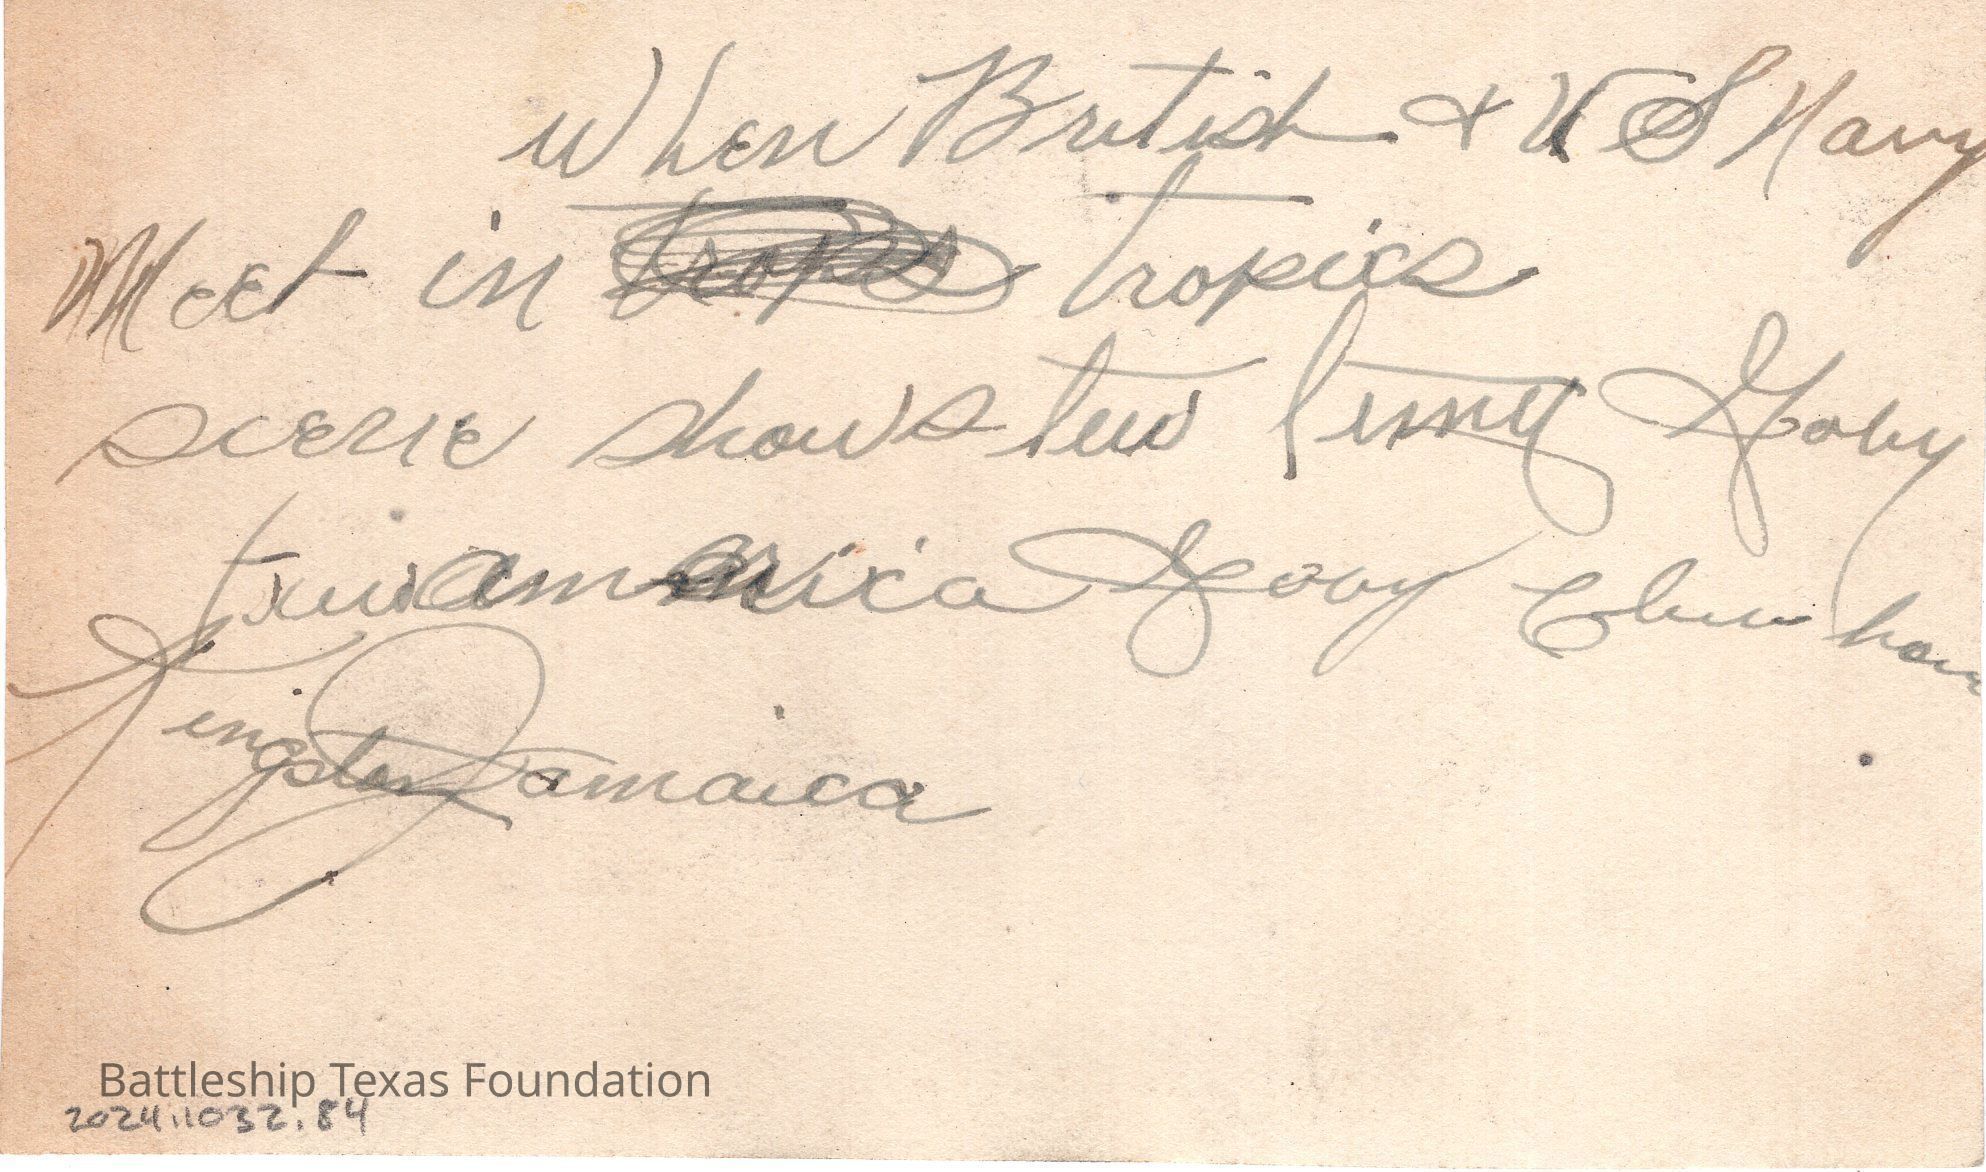 When British & U S Navy
Meet in trops tropics
scene shows two limy Goby
two America Goby
Kingston Jamaica
Battleship Texas Foundation
2024.1032.84